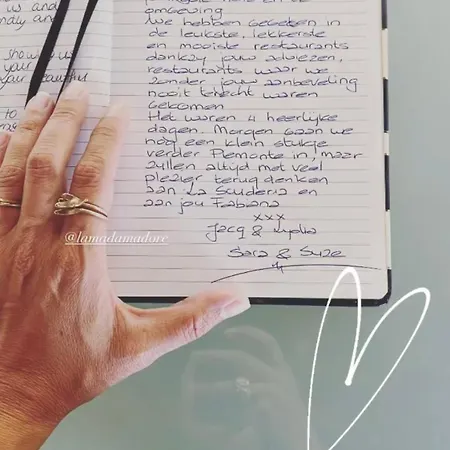 us and
ndly and
show us
your
your beautiful
to
omgeving
We hebben gegeten in
de leukste, lekkerste
en mooiste restaurants
dankzij jouw adviezen,
restaurants waar we
zonder jouw aanbeveling
nooit terecht waren
gekomen
Het waren 4 heerlijke
dagen. Morgen gaan we
nog een klein stukje
verder Piemonte in, maar
zullen altijd met veel
plezier terug denken
aan La Scuderia en
aan jou Fabiana
xxx
Jacq & Lydia
Sara & Suze
@lamadamadore